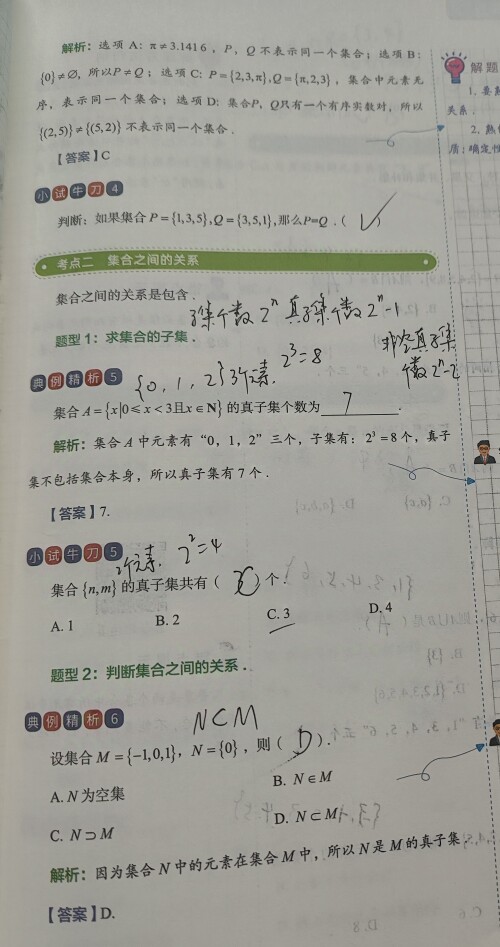 解析：选项 A: π≠3.1416，P，Q 不表示同一个集合；选项 B:
{0}≠∅，所以P≠Q；选项 C: P={2,3,π},Q={π,2,3}，集合中元素无
序，表示同一个集合；选项 D: 集合P，Q只有一个有序实数对，所以
{(2,5)}≠{(5,2)} 不表示同一个集合．
【答案】C
解题
1. 要
关系．
2. 熟
质：确定性
小试牛刀4
判断：如果集合 P={1,3,5},Q={3,5,1},那么P=Q．（√）
考点二 集合之间的关系
集合之间的关系是包含．
子集个数 2ⁿ 真子集个数 2ⁿ-1
题型 1：求集合的子集．
非空真子集
个数 2ⁿ-2
典例精析5
{0,1,2}3个元素. 2³=8
集合 A={x|0⩽x<3且x∈N} 的真子集个数为 7 ．
解析：集合 A 中元素有“0，1，2”三个，子集有：2³=8个，真子
集不包括集合本身，所以真子集有 7 个．
【答案】7.
小试牛刀5
2个元素. 2²=4
集合 {n,m} 的真子集共有（ ）个．
A. 1 B. 2 C. 3 D. 4
题型 2：判断集合之间的关系．
典例精析6
N⊂M
设集合 M={-1,0,1}，N={0}，则（ D ）．
A. N 为空集 B. N∈M
C. N⊃M D. N⊂M
解析：因为集合 N 中的元素在集合 M 中，所以 N 是 M 的真子集．
【答案】D.